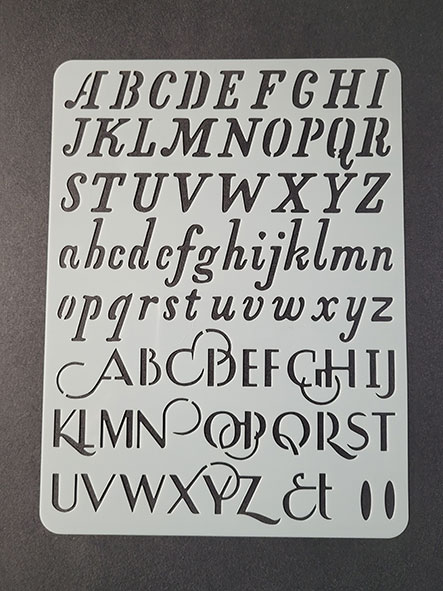 ABCDEFGHI
JKLMNOPQR
STUVWXYZ
abcdefghijklmn
opqrstuvwxyz
ABCDEFGHIJ
KLMNOPQRST
UVWXYZ &